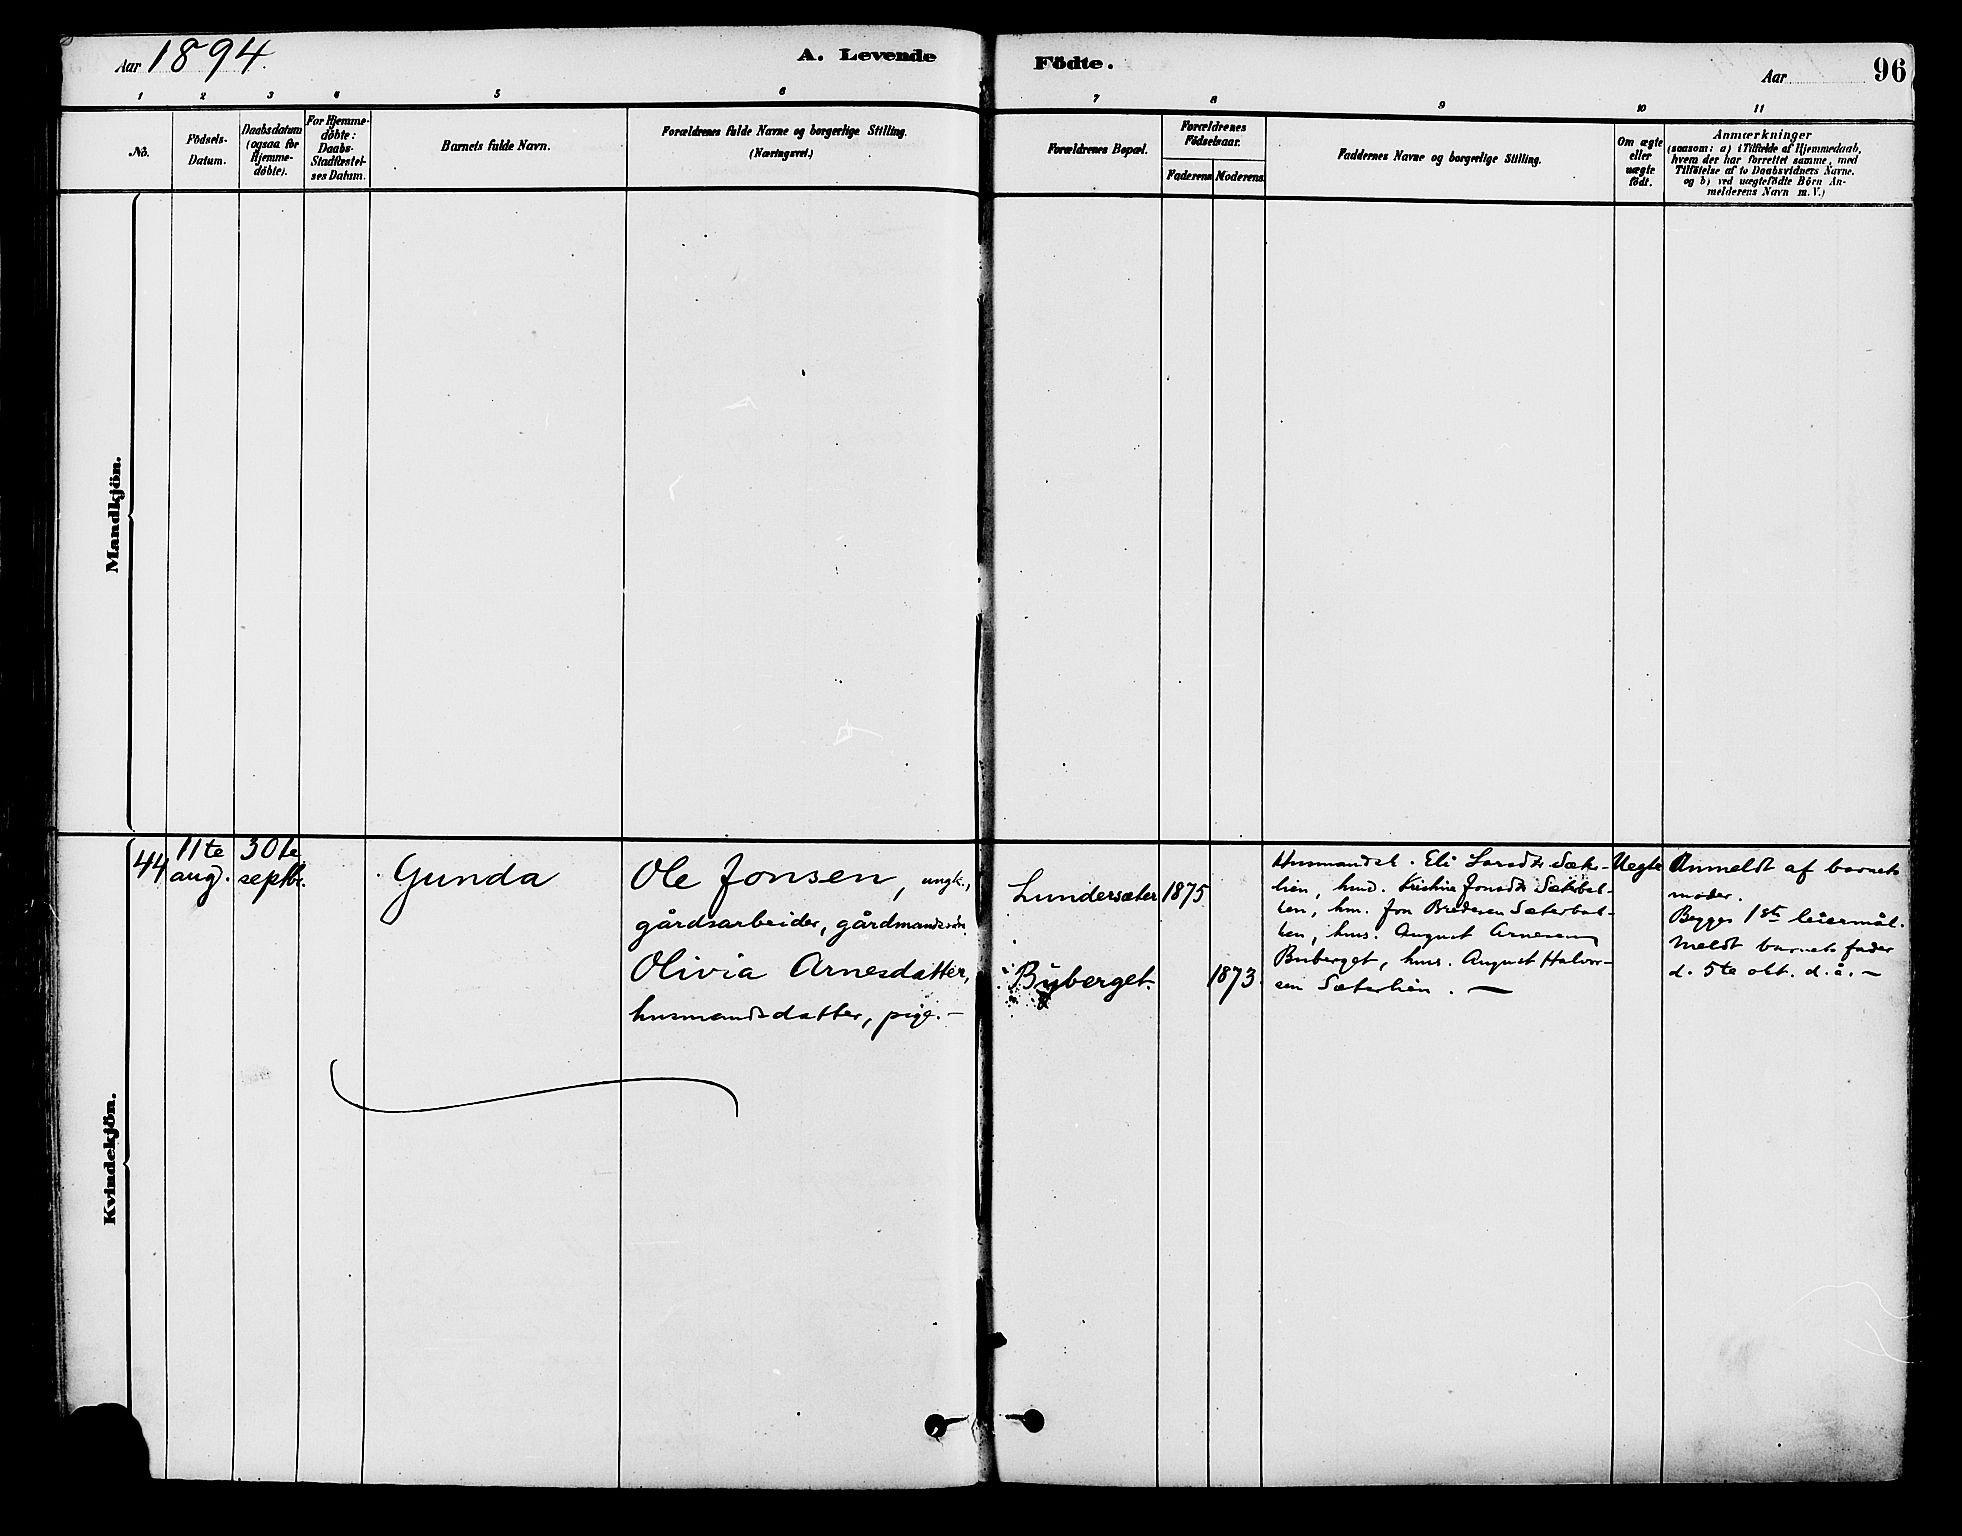 Aar 1894.
A. Levende Födte.
Aar
96
1 2 3 4 5 6 7 8 9 10 11
No.
Födsels-
Datum.
Daabsdatum
(ogsaa for
Hjemme-
döbte).
For Hjemme-
döbte:
Daabs-
Stadfæstel-
ses Datum.
Barnets fulde Navn.
Forældrenes fulde Navne og borgerlige Stilling.
(Næringsvei.)
Forældrenes Bopæl.
Forældrenes
Födselsaar.
Faderens Moderens
Faddernes Navne og borgerlige Stilling.
Om ægte
eller
uægte
födt.
Anmærkninger
(saasom: a) i Tilfælde af Hjemmedaab,
hvem der har forrettet samme, med
Tilföielse af to Daabsvidners Navne.
og b) ved uægtefödte Börn An-
melderens Navn m. V.)
Mandkjön.
Kvindekjön.
44
11te
aug.
30te
septbr.
Gunda
Ole Jonsen, ungk.,
gårdsarbeider, gårdmandssön.
Olivia Arnesdatter,
husmandsdatter, pige.-
Lundersæter
Byberget.
1875
1873.
Eli Larsdtr Sæter-
lien, Kristine Jonsdtr Sæterbak-
ken, hm. Jon Bredesen Sæterbak-
ken, hus. August Arnesen
Buberget, hus. August Halvor-
sen Sæterlien. -
Uegte
Anmeldt af barnets
moder.
Begges 1ste leiermål.
Meldt barnets fader
d. 5te okt. d. å. -